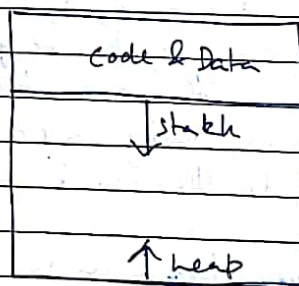 Code & Data
stakh
heap